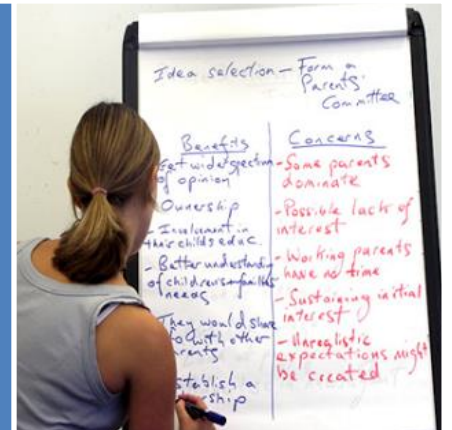 Idea selection – Form a
Parents'
Committee
Benefits
Get wide spectrum
of opinion
Ownership
- Involvement in
their childs educ.
- Better understanding
of children & families
needs
They would share
with other
Establish a
Concerns
- Some parents
dominate
- Possible lack of
interest
- Working parents
have no time
- Sustaining initial
interest
- Unrealistic
expectations might
be created